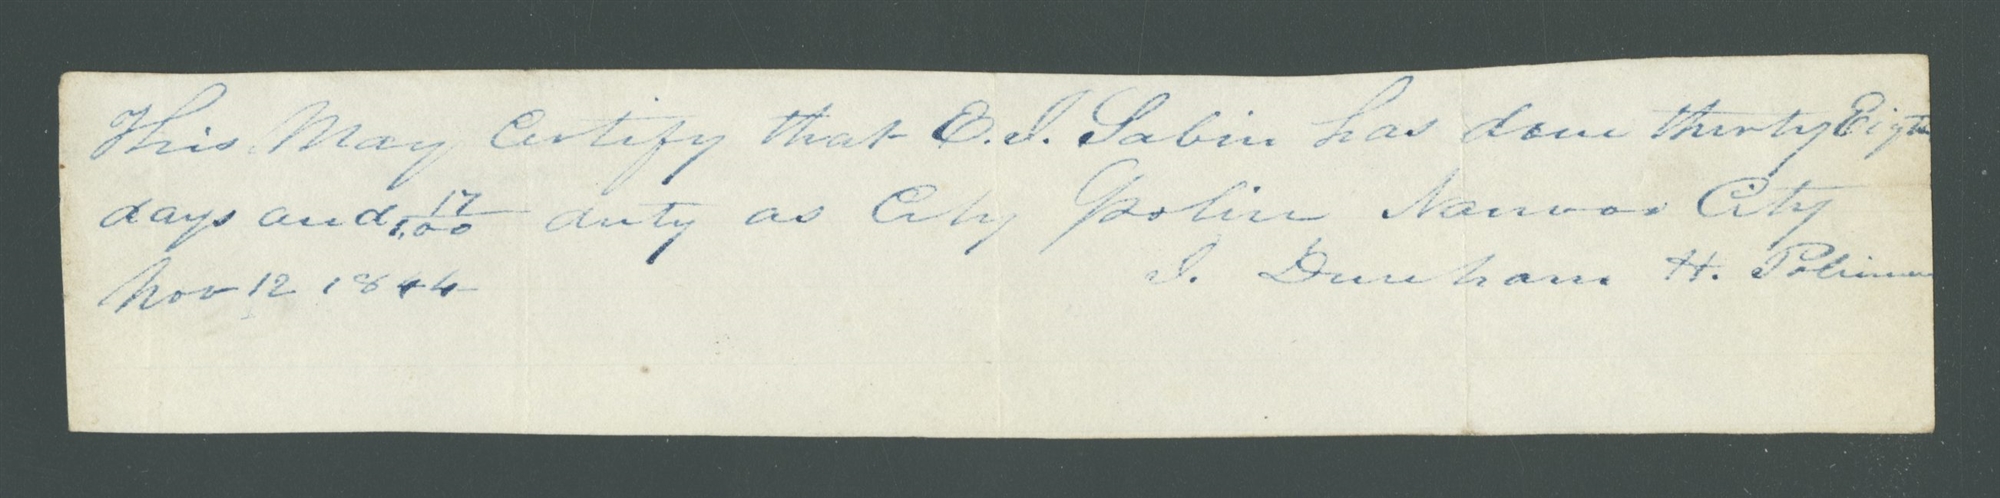 This May Certify that E. J. Sabin has done thirty Eight
days and 17/100 duty as City Police Nauvoo City
Nov 12 1844 J. Dunham H. Policeman